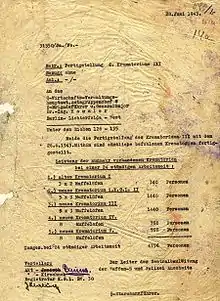 28. Juni 1943.
31550/Ja./Ne.-
Betr.: Fertigstellung d. Krematoriums III
Bezug: ohne
Anl.: -/-
An das
Wirtschafts-Verwaltungs-
hauptamt, Amtsgruppenchef C
Generalmajor
Dr.-Ing. Kammler
Berlin-Lichterfelde-West
Unter den Eichen 126 - 135
Melde die Fertigstellung des Krematoriums III mit dem
26.6.1943. Mithin sind sämtliche befohlenen Krematorien fertig-
gestellt.
Leistung der nunmehr vorhandenen Krematorien
bei einer 24 stündigen Arbeitszeit:
1.) altes Krematorium I
3 x 2 Muffelöfen 340 Personen
2.) neues Krematorium i.K.G.L. II
5 x 3 Muffelöfen 1440 Personen
3.) neues Krematorium III
5 x 3 Muffelöfen 1440 Personen
4.) neues Krematorium IV.
8 Muffelöfen 768 Personen
5.) neues Krematorium V.
8 Muffelöfen 768 Personen
Insges. bei 24 stündiger Arbeitszeit 4756 Personen
Verteiler:
Der Leiter der Zentralbauleitung
der Waffen- und Polizei Auschwitz
Registratur K.G.L. BW. 30
Sturmbannführer.